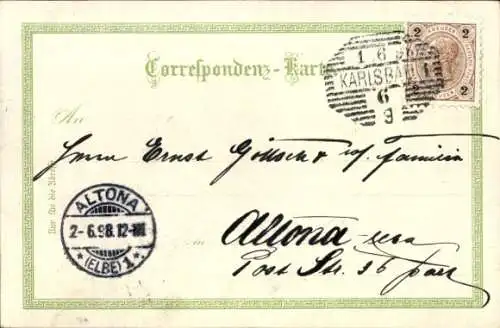 Correspondenz-Karte
2 2
2 2
1 6 9
KARLSBAD 1
6
9
An
Herrn Ernst Göttsch & Familie
Nur für die Adresse
ALTONA
2-6.98.12-
* (ELBE) 1. *
in
Altona
Post Str. 36